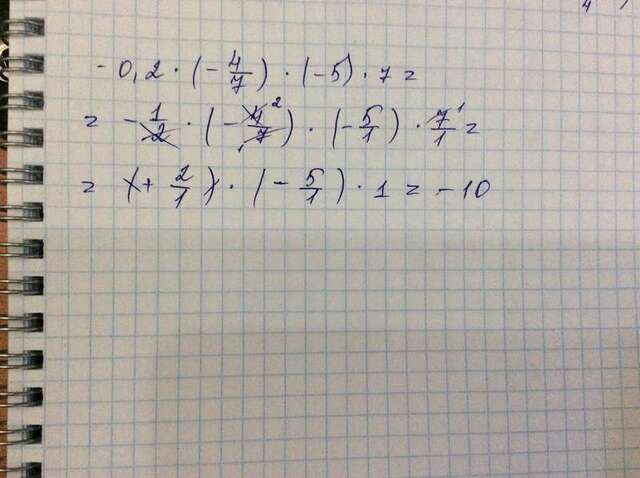 -0,2 · (-4/7) · (-5) · 7 =
= -1/2 · (-4/7 2) · (-5/1) · 7/1 1 =
= (+ 2/1) · (- 5/1) · 1 = -10